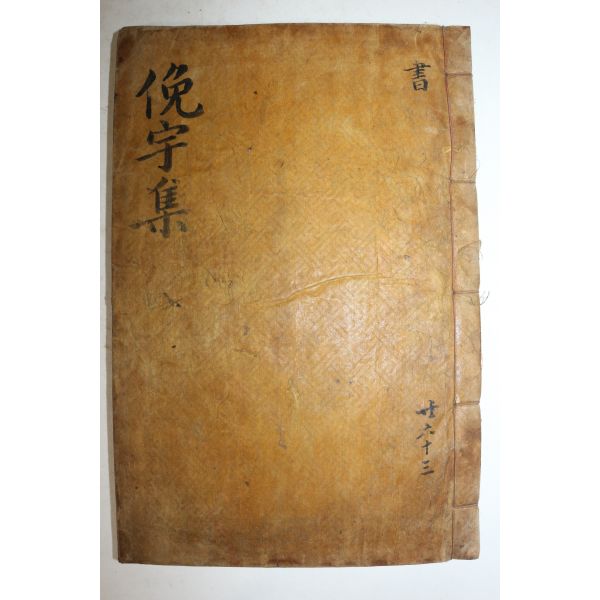 書
共六十三
俛宇集